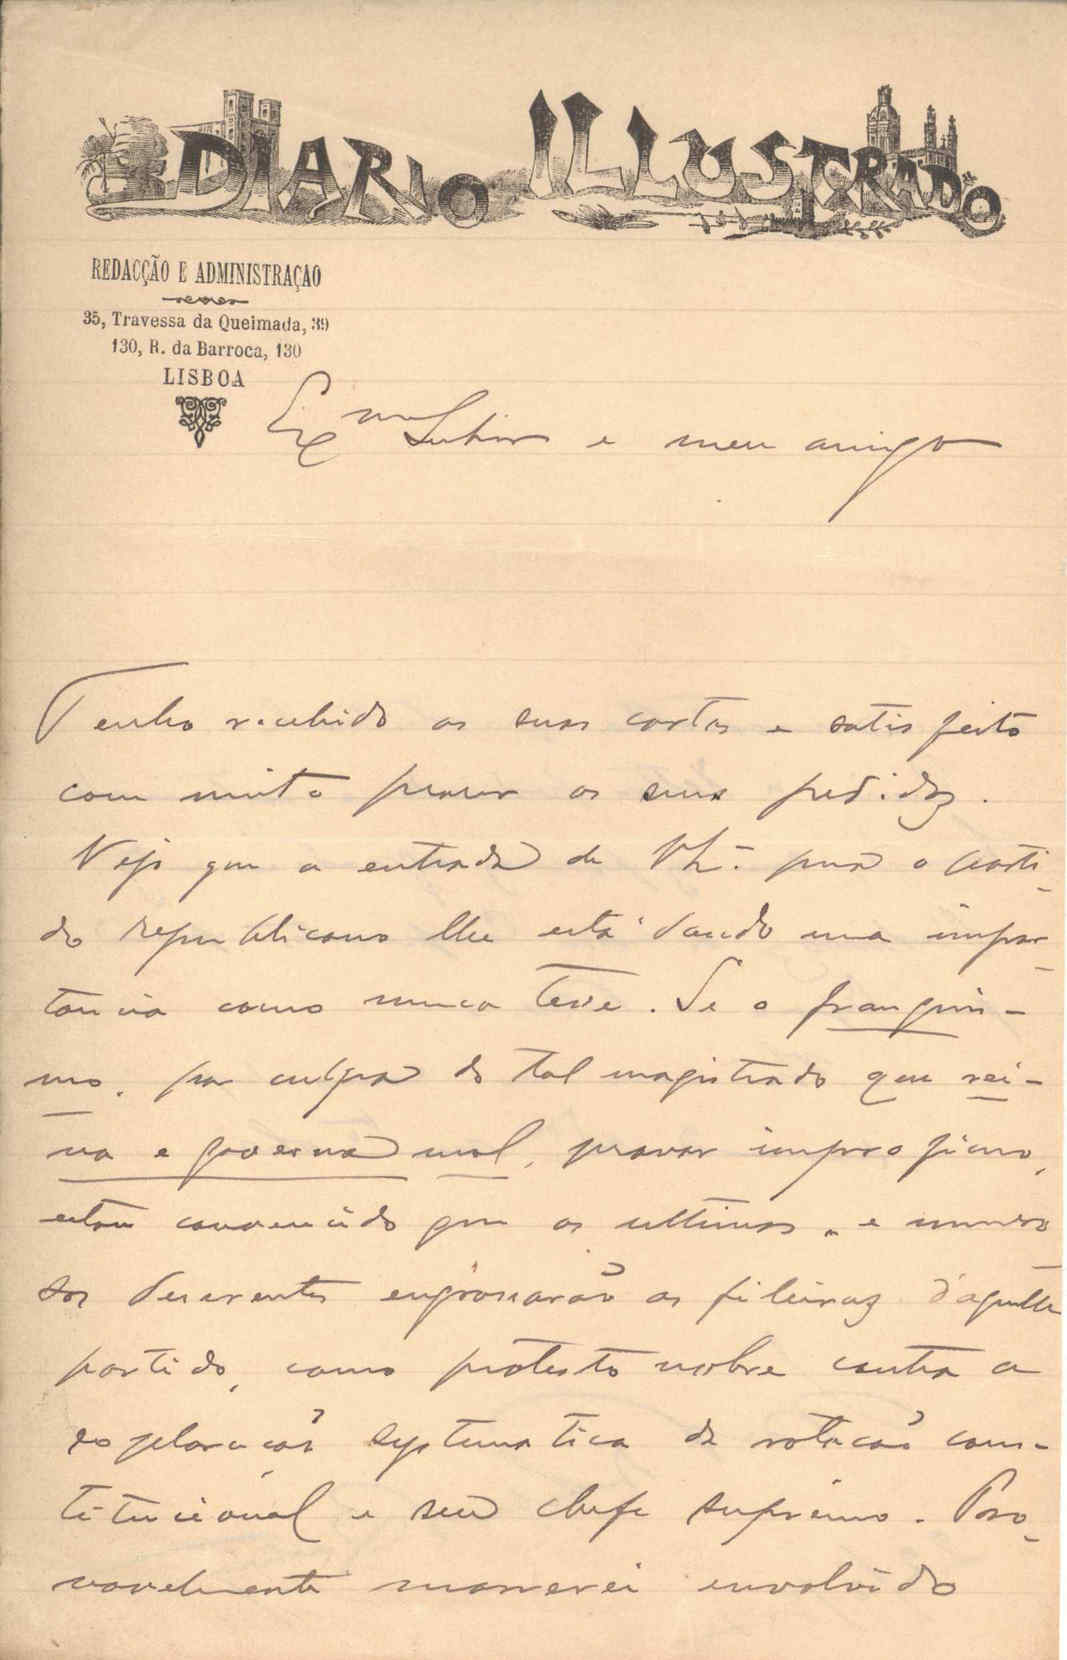 DIARIO ILLUSTRADO
REDACÇÃO E ADMINISTRAÇAO
35, Travessa da Queimada, 39
130, R. da Barroca, 130
LISBOA
Exmo Senhor e meu amigo
Tenho recebido as suas cartas e satisfeito
com muito prazer os seus pedidos.
Vejo que a entrada de para o parti-
do republicano lhe está dando uma impor-
tancia como nunca teve. Se o franquis-
mo, por culpa do tal magistrado que rei-
na e governa mal, provar improficuo,
estou convencido que os ultimos, e
sos descrentes engrossarão as fileiras d'aquelle
partido, como protesto nobre contra a
exploração systematica da rotação cons-
titucional e seu chefe supremo. Pro-
vavelmente morrerei envolvido